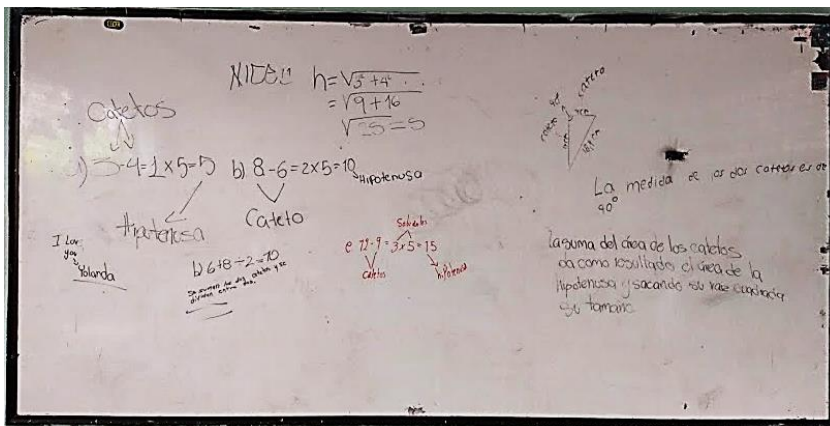 h=√3²+4²
=√9+16
√25=5
Catetos
a) 3-4=1x5=5
Hipotenusa
b) 8-6=2x5=10
Hipotenusa
Cateto
I Lov
you
Yolanda
b) 6+8÷2=10
Se suman los dos catetos y se
dividen entre dos.
c 12-9=3x5=15
catetos
hipotenusa
cateto
cateto
La medida de los dos catetos es de
90°
La suma del área de los catetos
da como resultado el área de la
hipotenusa y sacando su raiz cuadrada
su tamaño